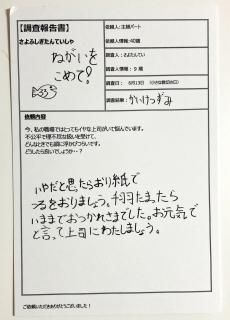 【調査報告書】
さよふしぎたんていしゃ
ねがいを
こめて!
依頼人:主婦パート
依頼人情報:40歳
調査人:さよたんてい
調査人情報:9歳
調査日:6月13日
調査結果:かいけつずみ
依頼内容
今、私の職場ではとってもイヤな上司がいて悩んでいます。
不公平で理不尽な扱いを受けて、
どんなときでも頭に浮かびつらいです。
どうしたら良いでしょうか・・?
いやだと思たらおり紙で
つるをおりましょう。千羽たまったら
いままでおつかれさまでした。お元気で
と言って上司にわたしましょう。
ご依頼いただきありがとうございました!